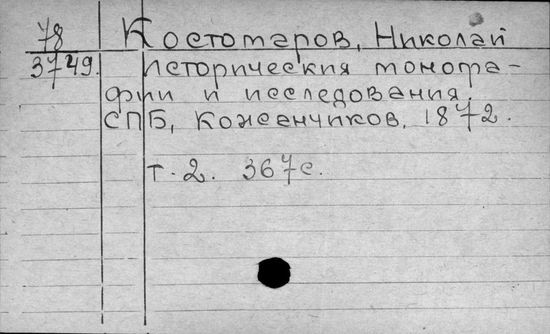 78 Костомаров, Николай
3749. Исторические моногра-
фии и исследования.
СПБ, Кожанчиков, 1872.
т. 2. 367 с.